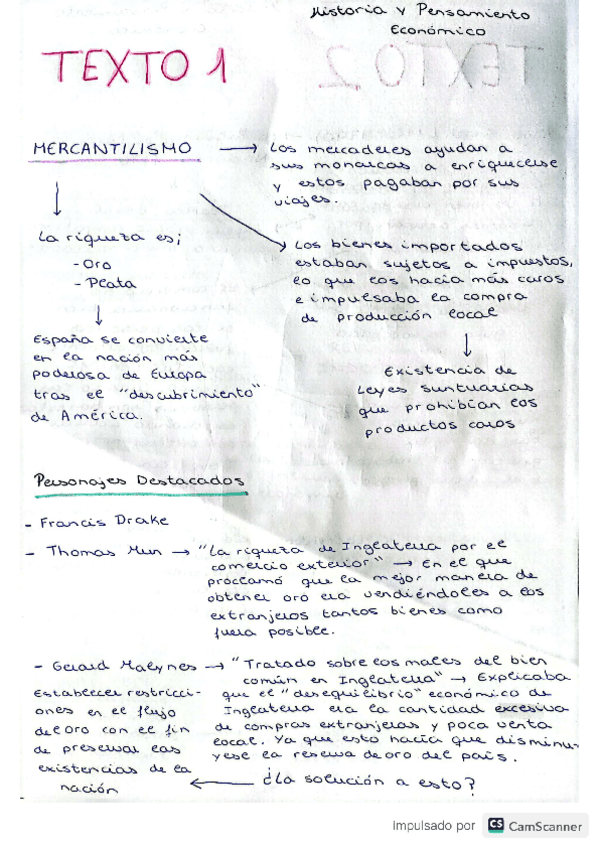 Historia y Pensamiento
Económico
TEXTO 1
TEXTO 2
MERCANTILISMO → Los mercaderes ayudan a
sus monarcas a enriquecerse
y estos pagaban por sus
viajes.
La riqueza es;
- Oro
- Plata
España se convierte
en la nación más
poderosa de Europa
tras el "descubrimiento"
de América.
Los bienes importados
estaban sujetos a impuestos,
lo que los hacía más caros
e impulsaba la compra
de producción local
Existencia de
Leyes suntuarias
que prohibían los
productos caros
Personajes Destacados
- Francis Drake
- Thomas Mun → "La riqueza de Inglaterra por el
comercio exterior" → En el que
proclamó que la mejor manera de
obtener oro era vendiéndoles a los
extranjeros tantos bienes como
fuera posible.
- Gerard Malynes → "Tratado sobre los males del bien
común en Inglaterra" → Explicaba
que el "desequilibrio" económico de
Inglaterra era la cantidad excesiva
de compras extranjeras y poca venta
local. Ya que esto hacía que disminu-
yese la reserva de oro del país.
¿La solución a esto?
Establecer restricci-
ones en el flujo
del oro con el fin
de preservar las
existencias de la
nación
Impulsado por CS CamScanner